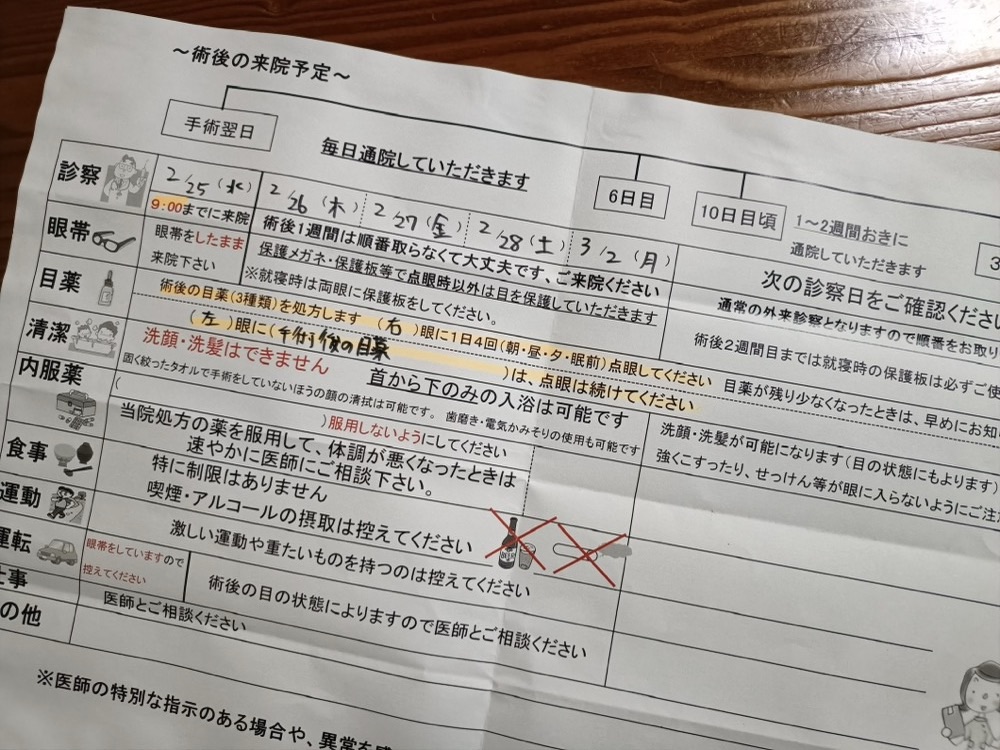 ～術後の来院予定～
手術翌日
毎日通院していただきます
6日目
10日目頃
1～2週間おきに
通院していただきます
3
診察
2/25(水)
2/26(木)
2/27(金)
2/28(土)
3/2(月)
9:00までに来院
術後1週間は順番取らなくて大丈夫です、ご来院ください
次の診察日をご確認くださ
通常の外来診察となりますので順番をお取り
眼帯
眼帯をしたまま
来院下さい
保護メガネ・保護板等で点眼時以外は目を保護していただきます
※就寝時は両眼に保護板をしてください。
術後2週間目までは就寝時の保護板は必ずご使
目薬
術後の目薬(3種類)を処方します (右)眼に1日4回(朝・昼・夕・眠前)点眼してください
(左)眼に(手術前後の目薬 )は、点眼は続けてください
目薬が残り少なくなったときは、早めにお知
清潔
洗顔・洗髪はできません 首から下のみの入浴は可能です
固く絞ったタオルで手術をしていないほうの顔の清拭は可能です。 歯磨き・電気かみそりの使用も可能です
洗顔・洗髪が可能になります(目の状態にもよります)
強くこすったり、せっけん等が眼に入らないようにご注
内服薬
( )服用しないようにしてください
当院処方の薬を服用して、体調が悪くなったときは
速やかに医師にご相談下さい。
食事
特に制限はありません
喫煙・アルコールの摂取は控えてください
BEER
運動
激しい運動や重たいものを持つのは控えてください
運転
眼帯をしていますので
控えてください
術後の目の状態によりますので医師とご相談ください
仕事
医師とご相談ください
の他
※医師の特別な指示のある場合や、異常を感